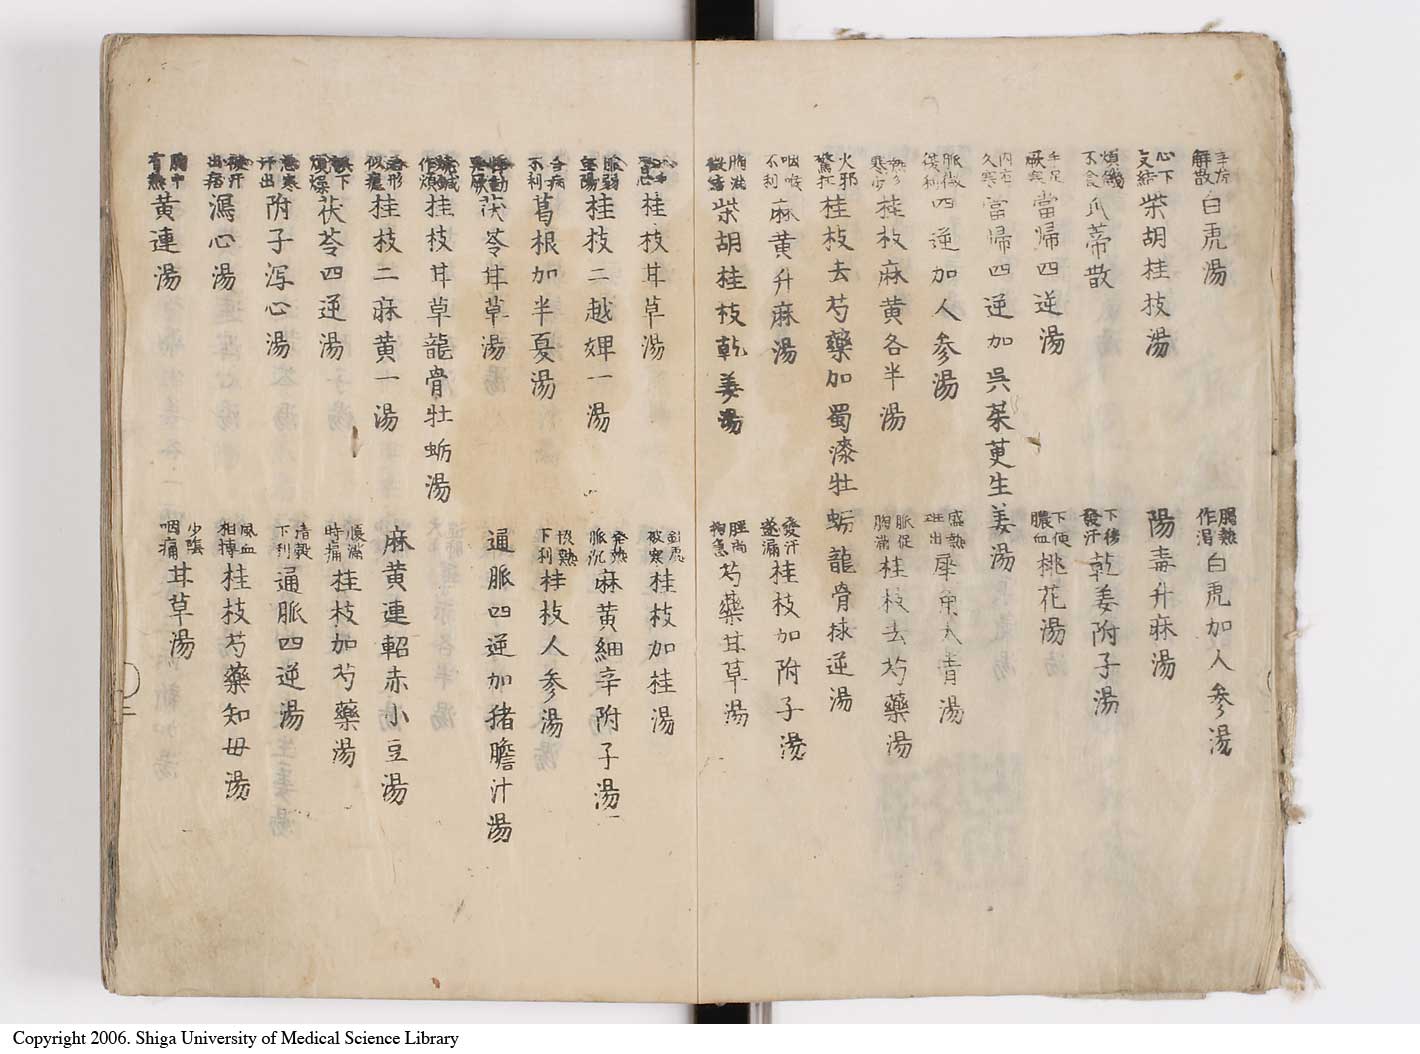 解散 白虎湯 腸熱作渇 白虎加人参湯
心下支結 柴胡桂枝湯 陽毒升麻湯
煩饑不食 瓜蒂散 下後發汗 乾姜附子湯
手足厥寒 當歸四逆湯 下便膿血 桃花湯
内有久寒 當歸四逆加呉茱萸生姜湯
脈微 四逆加人参湯 盛熱班出 犀角大青湯
熱多寒少 桂枝麻黄各半湯 脈促胸満 桂枝去芍藥湯
火邪驚狂 桂枝去芍藥加蜀漆牡蛎龍骨捄逆湯
咽喉不利 麻黄升麻湯 發汗遂漏 桂枝加附子湯
胸満微結 柴胡桂枝乾姜湯 拘急 芍藥甘草湯
桂枝甘草湯 被寒 桂枝加桂湯
脈弱無陽 桂枝二越婢一湯 發熱脈沉 麻黄細辛附子湯
合病不利 葛根加半夏湯 恊熱下利 桂枝人参湯
茯苓甘草湯 通脈四逆加猪膽汁湯
作煩 桂枝甘草龍骨牡蛎湯
形似瘧 桂枝二麻黄一湯 麻黄連軺赤小豆湯
煩燥 茯苓四逆湯 脹満時痛 桂枝加芍藥湯
悪寒汗出 附子泻心湯 清穀下利 通脈四逆湯
瀉心湯 風血相搏 桂枝芍藥知母湯
胸中有熱 黄連湯 少陰咽痛 甘草湯
Copyright 2006. Shiga University of Medical Science Library